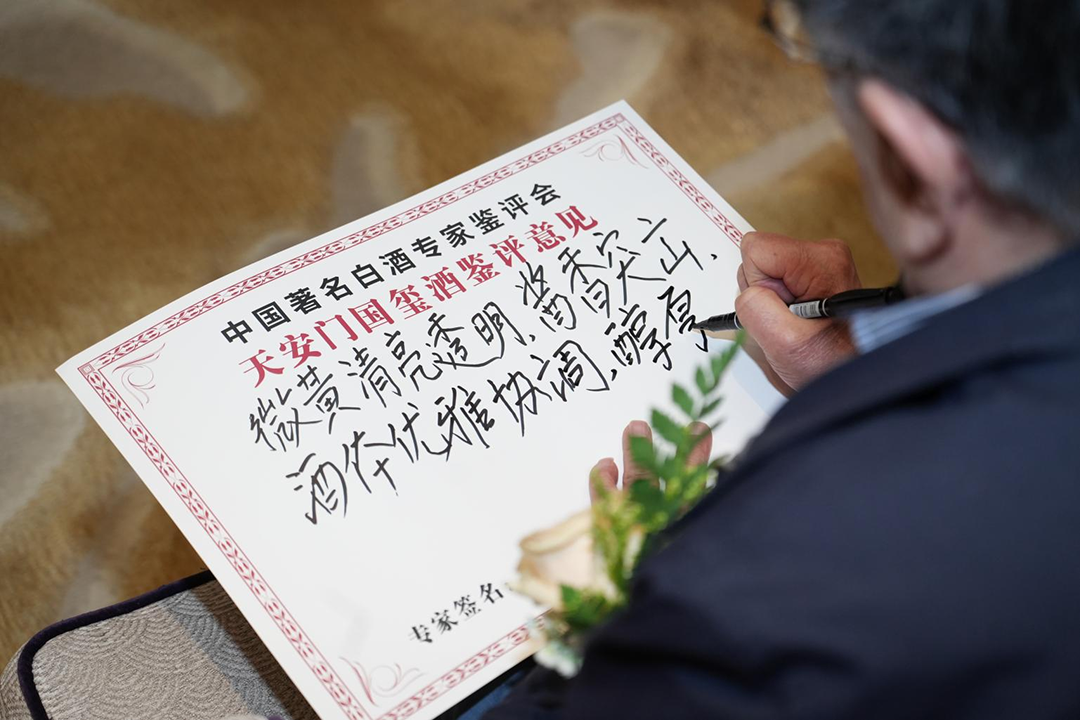 中国著名白酒专家鉴评会
天安门国玺酒鉴评意见
微黄清亮透明、酱香突出、
酒体优雅协调、醇厚
专家签名